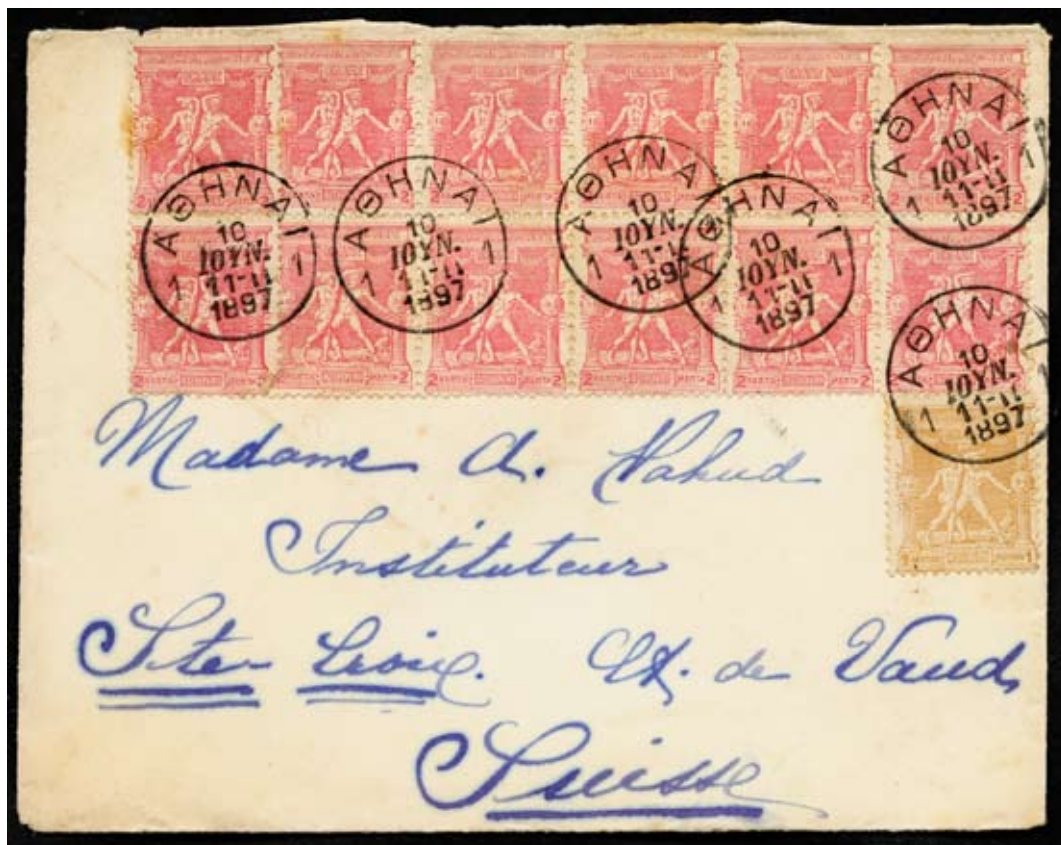 ΑΘΗΝΑΙ
1 10 1
ΙΟΥΝ.
11-11
1897
ΑΘΗΝΑΙ
1 10 1
ΙΟΥΝ.
11-11
1897
ΑΘΗΝΑΙ
1 10
ΙΟΥΝ.
11-11
1897
ΑΘΗΝΑΙ
1 10 1
ΙΟΥΝ.
11-11
1897
ΑΘΗΝΑΙ
1 10 1
ΙΟΥΝ.
11-11
1897
ΑΘΗΝΑΙ
1 10 1
ΙΟΥΝ.
11-11
1897
2 2 2 2 2 2 2 2 2 2 2
2 ΛΕΠΤΑ ΛΕΠΤΑ 2
1 1
Madame A. Vahud
Instituteur
Ste-Croix. Ct. de Vaud,
Suisse